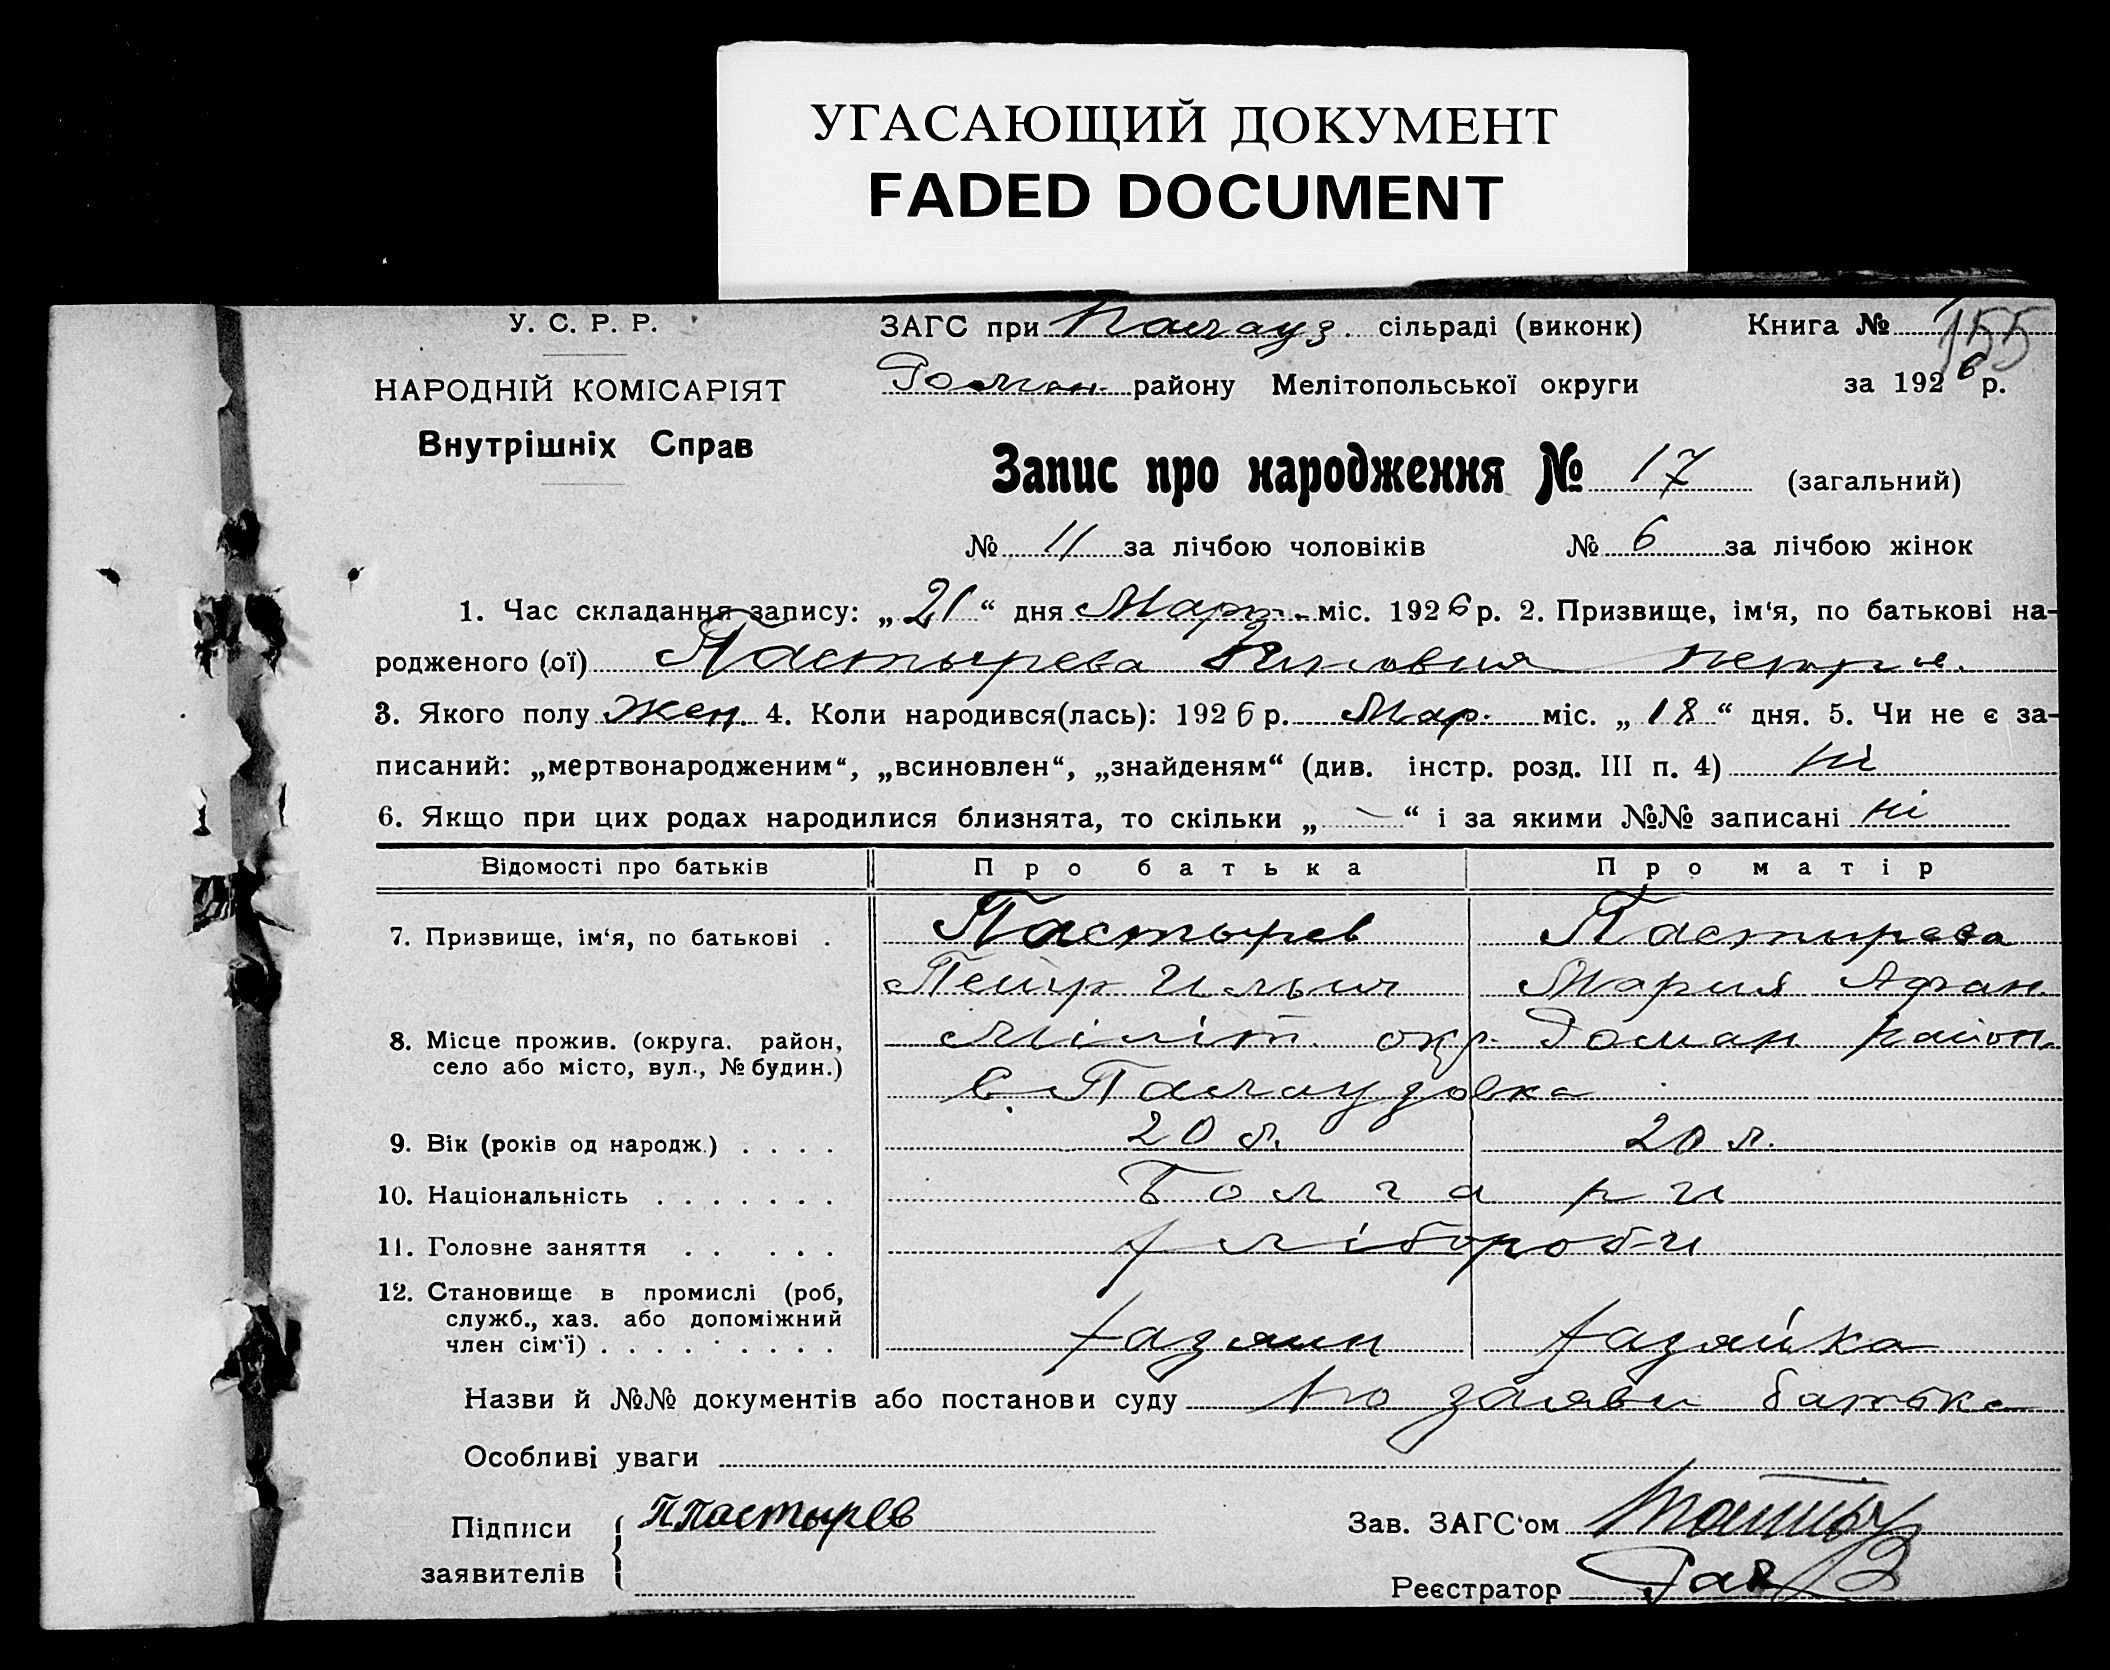 УГАСАЮЩИЙ ДОКУМЕНТ
FADED DOCUMENT
У. С. Р. Р.
НАРОДНІЙ КОМІСАРІЯТ
Внутрішніх Справ
ЗАГС при Палауз. сільраді (виконк)
Роман. району Мелітопольської округи
Книга № 155
за 1926 р.
Запис про народження № 17 (загальний)
№ 11 за лічбою чоловіків № 6 за лічбою жінок
1. Час складання запису: „21“ дня Март. міс. 1926 р. 2. Призвище, ім‘я, по батькові на-
родженого (ої) Пастырева
3. Якого полу Жен. 4. Коли народився(лась): 1926 р. Мар. міс. „18“ дня. 5. Чи не є за-
писаний: „мертвонародженим“, „всиновлен“, „знайденям“ (див. інстр. розд. III п. 4) ні
6. Якщо при цих родах народилися близнята, то скільки „ — “ і за якими №№ записані ні
Відомості про батьків Про батька Про матір
7. Призвище, ім‘я, по батькові . Пастырев Пастырева
Петр Ильич Мария Афан.
8. Місце прожив. (округа. район, село або місто, вул., № будин.) Міліт. окр. Роман район.
с. Палаузовка
9. Вік (років од народж.) . . . . 20 л. 20 л.
10. Національність . . . . . . . Болгари
11. Головне заняття . . . . . хлібороби
12. Становище в промислі (роб, служб., хаз. або допоміжний член сім‘ї) . . . . . . . . хазяин хазяйка
Назви й №№ документів або постанови суду по заяви батька
Особливі уваги
Підписи заявителів П Пастырев
Зав. ЗАГС‘ом
Реєстратор